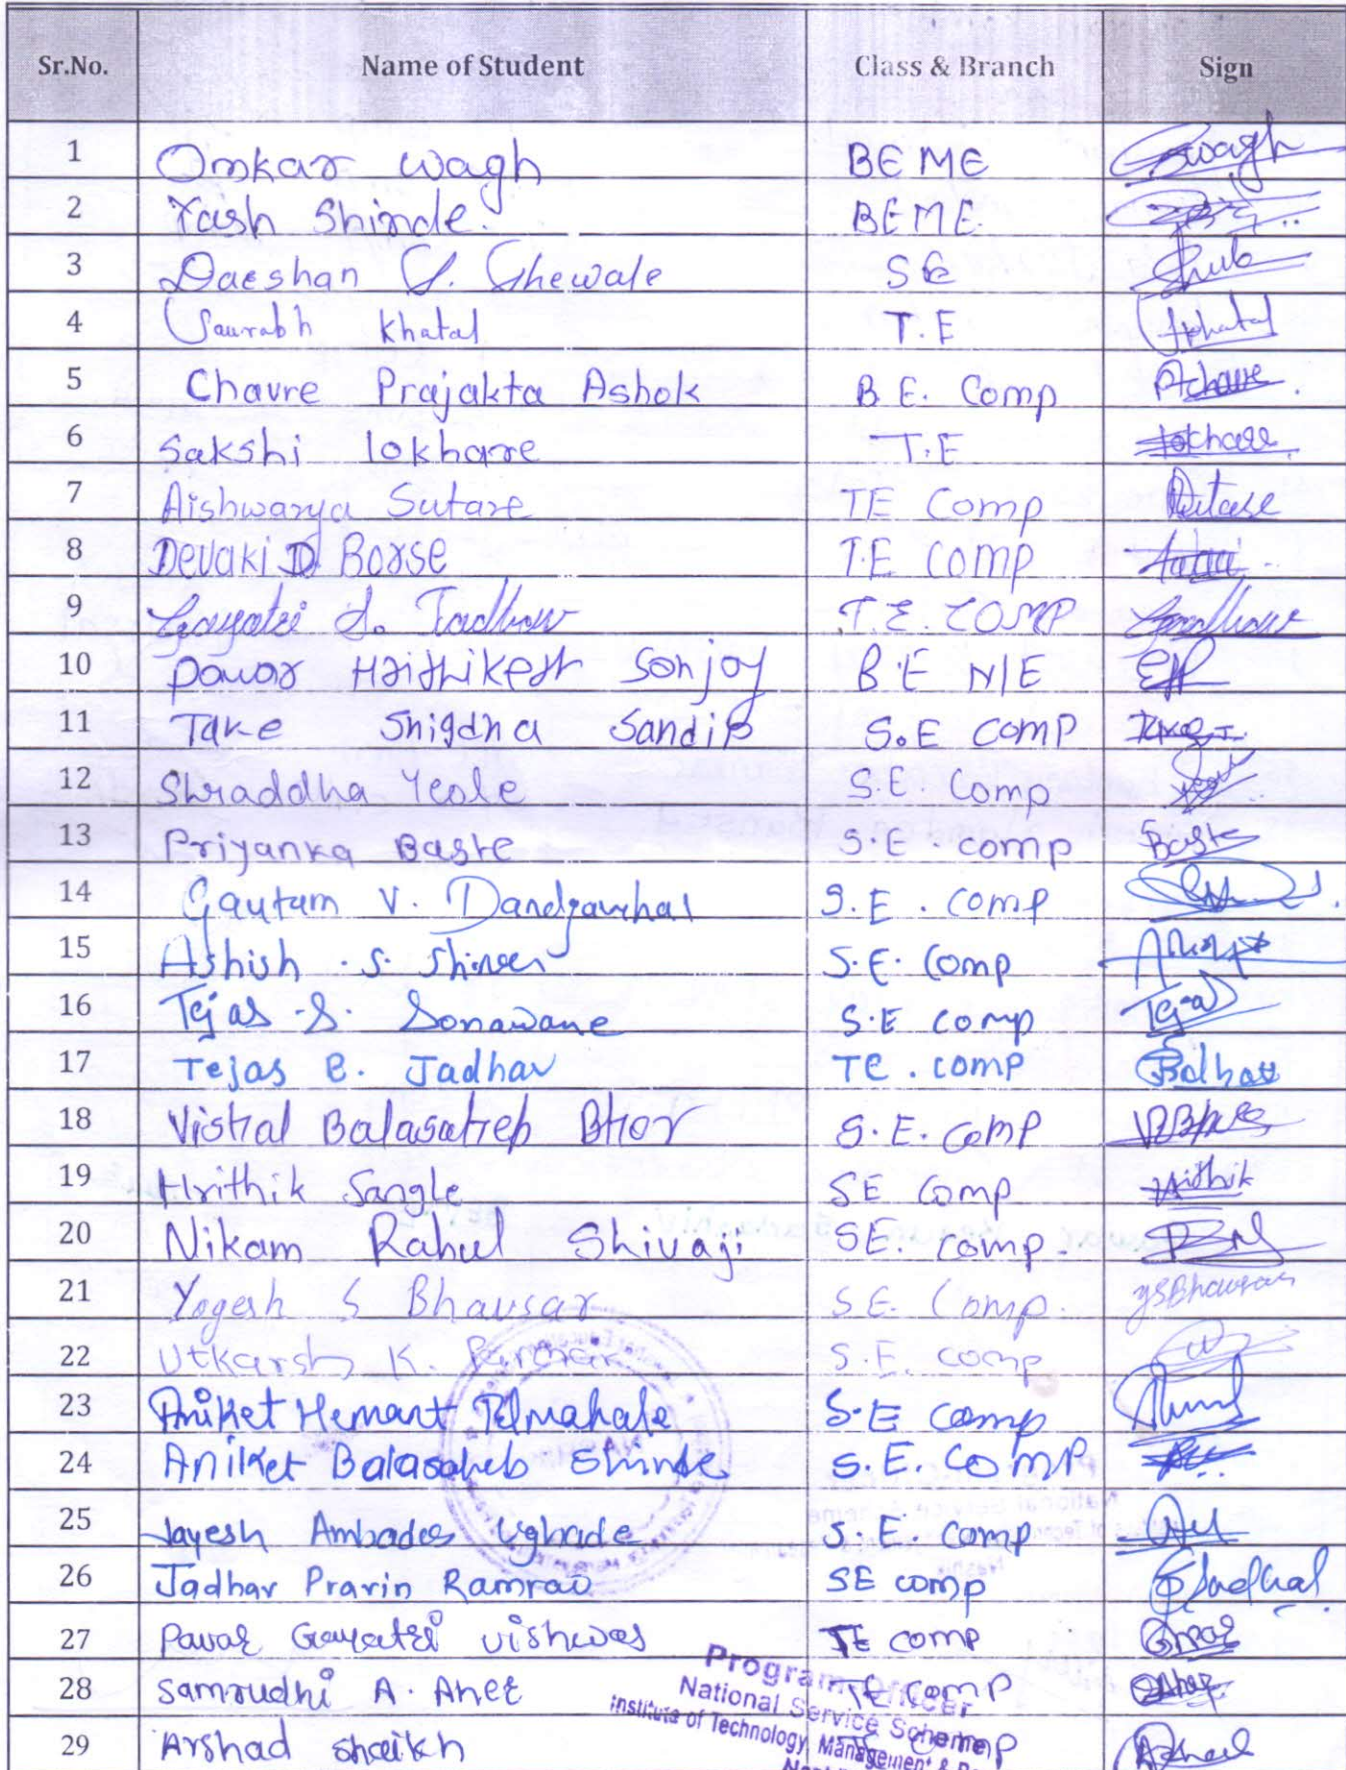 Sr.No. Name of Student Class & Branch Sign
1 Omkar wagh BE ME Owagh
2 Yash Shinde. BE ME
3 Daeshan S. Shewale SE
4 Saurabh Khatal T.E Skhatal
5 Chavre Prajakta Ashok B.E. Comp
6 Sakshi lokhare T.E
7 Aishwarya Sutare TE Comp
8 Devaki D. Borse T.E COMP
9 Gayatri S. Jadhav T.E. COMP
10 pawar Hrithikesh Sonjay B.E M/E
11 Take Snigdha Sandip S.E comp
12 Shraddha Yeole S.E. Comp
13 Priyanka Baste S.E. comp Baste
14 Gautam V. Dandgavhal S.E. comp
15 Ashish .S. S.E. Comp
16 Tejas .S. Sonawane S.E comp Tejas
17 Tejas B. Jadhav TE. comp
18 Vishal Balasaheb Bhor S.E. Comp
19 Hrithik Sangle SE Comp Hrithik
20 Nikam Rahul Shivaji SE. comp.
21 Yogesh S Bhavsar S.E. Comp. YSBhavsar
22 Utkarsh K. S.E. comp
23 Aniket Hemant Telmahale S.E comp
24 Aniket Balasaheb Shinde S.E. COMP
25 Jayesh Ambadas Ughade S.E. comp
26 Jadhav Pravin Ramrao SE comp
27 Pavar Gayatri vishwas TE comp
28 Samrudhi A. Aher TE comp
29 Arshad shaikh
Program Officer
National Service Scheme
Institute of Technology, Management &